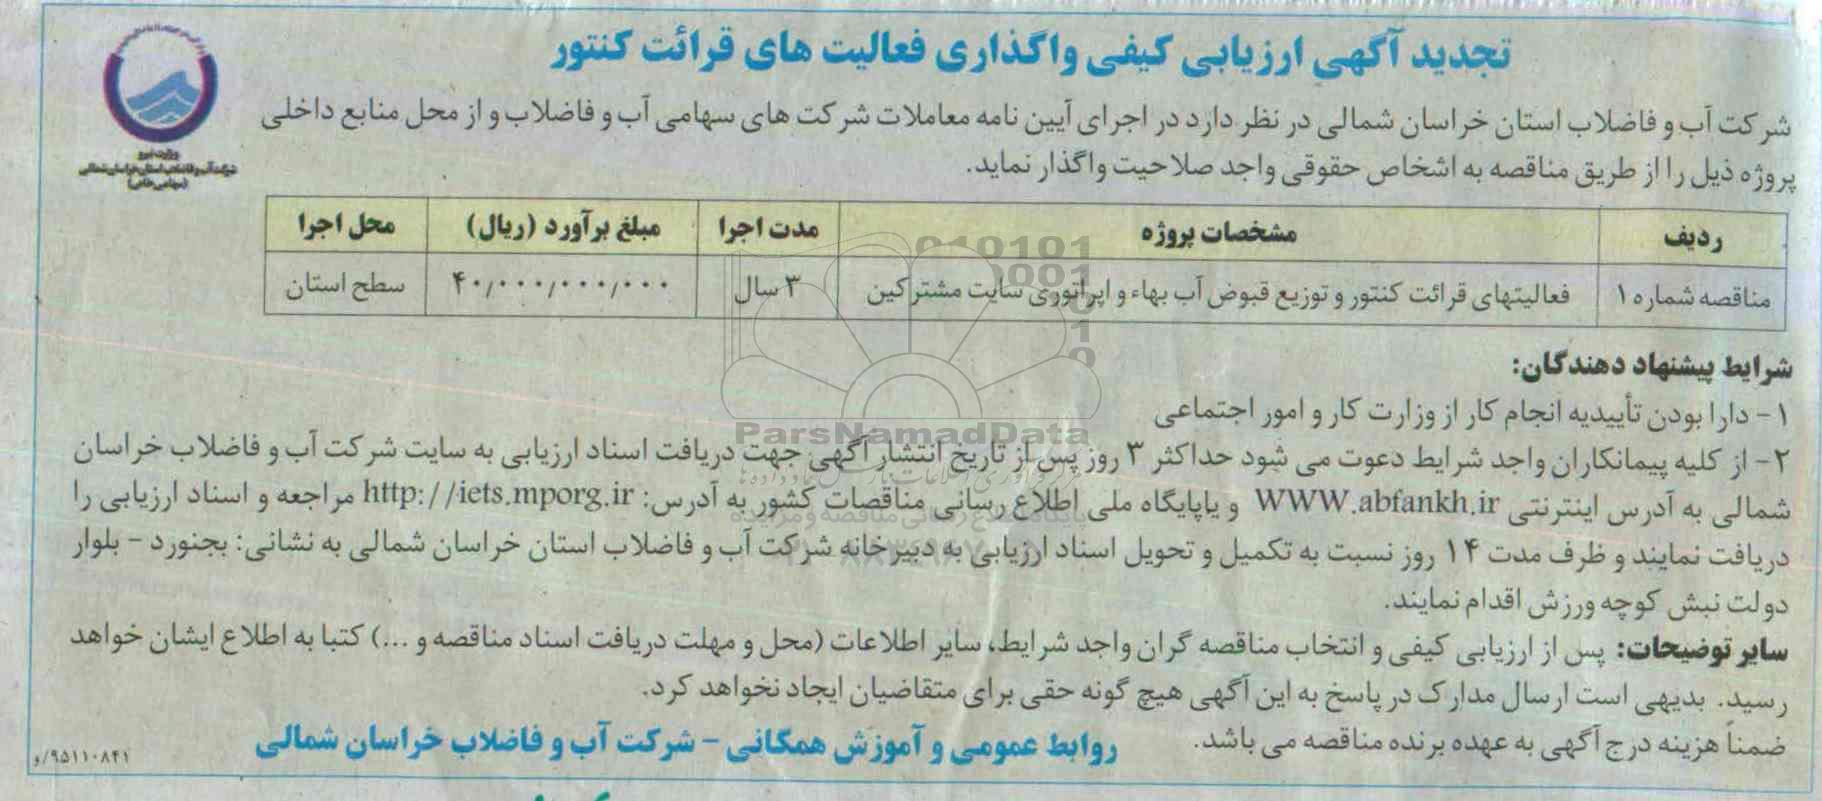 تجدید آگهی ارزیابی کیفی واگذاری فعالیت های قرائت کنتور
وزارت نیرو
شرکت آب و فاضلاب استان خراسان شمالی
(سهامی خاص)
شرکت آب و فاضلاب استان خراسان شمالی در نظر دارد در اجرای آیین نامه معاملات شرکت های سهامی آب و فاضلاب و از محل منابع داخلی
پروژه ذیل را از طریق مناقصه به اشخاص حقوقی واجد صلاحیت واگذار نماید.
ردیف مشخصات پروژه مدت اجرا مبلغ برآورد (ریال) محل اجرا
مناقصه شماره ۱ فعالیتهای قرائت کنتور و توزیع قبوض آب بهاء و اپراتوری سایت مشترکین ۳ سال ۴۰/۰۰۰/۰۰۰/۰۰۰ سطح استان
شرایط پیشنهاد دهندگان:
۱- دارا بودن تأییدیه انجام کار از وزارت کار و امور اجتماعی
ParsNamadData
۲- از کلیه پیمانکاران واجد شرایط دعوت می شود حداکثر ۳ روز پس از تاریخ انتشار آگهی جهت دریافت اسناد ارزیابی به سایت شرکت آب و فاضلاب خراسان
شمالی به آدرس اینترنتی WWW.abfankh.ir و یاپایگاه ملی اطلاع رسانی مناقصات کشور به آدرس: http://iets.mporg.ir مراجعه و اسناد ارزیابی را
دریافت نمایند و ظرف مدت ۱۴ روز نسبت به تکمیل و تحویل اسناد ارزیابی به دبیرخانه شرکت آب و فاضلاب استان خراسان شمالی به نشانی: بجنورد - بلوار
دولت نبش کوچه ورزش اقدام نمایند.
سایر توضیحات: پس از ارزیابی کیفی و انتخاب مناقصه گران واجد شرایط، سایر اطلاعات (محل و مهلت دریافت اسناد مناقصه و ...) کتبا به اطلاع ایشان خواهد
رسید. بدیهی است ارسال مدارک در پاسخ به این آگهی هیچ گونه حقی برای متقاضیان ایجاد نخواهد کرد.
ضمناً هزینه درج آگهی به عهده برنده مناقصه می باشد.
روابط عمومی و آموزش همگانی - شرکت آب و فاضلاب خراسان شمالی
۹۵۱۱۰۸۴۱/و